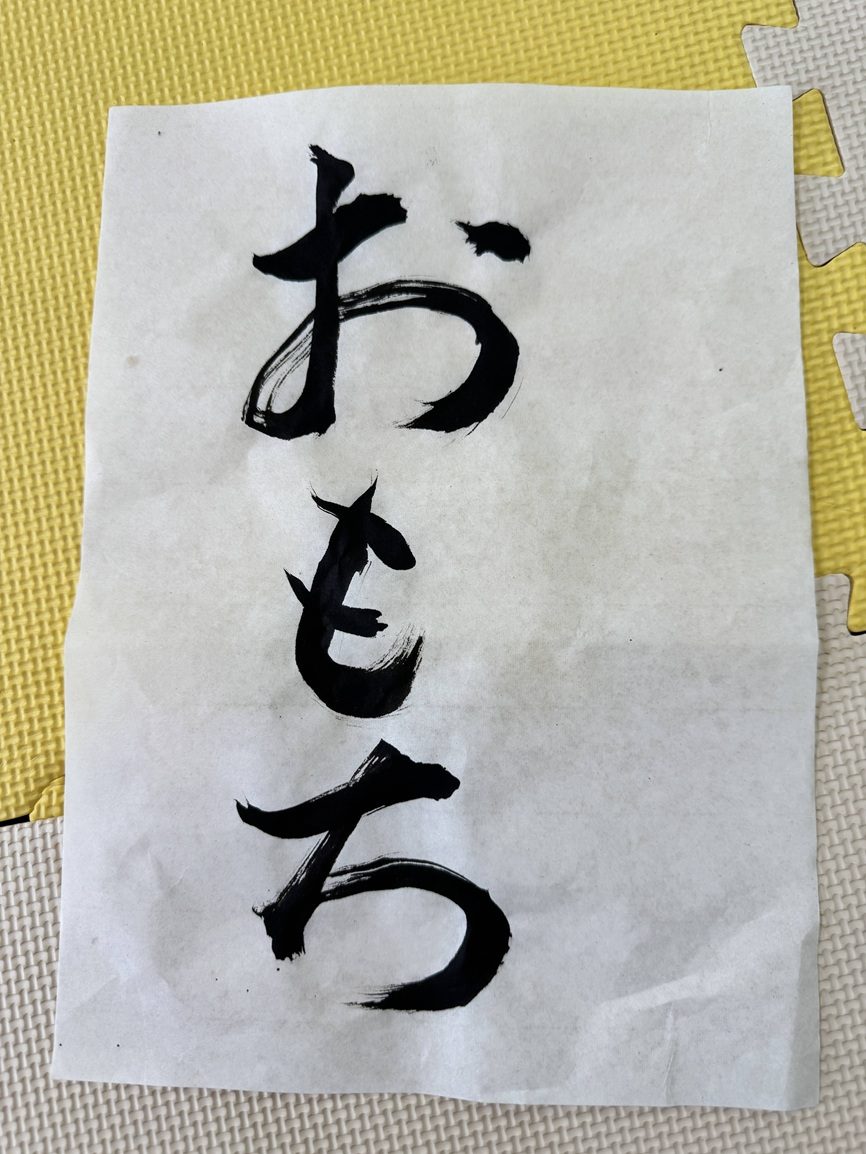 おもち